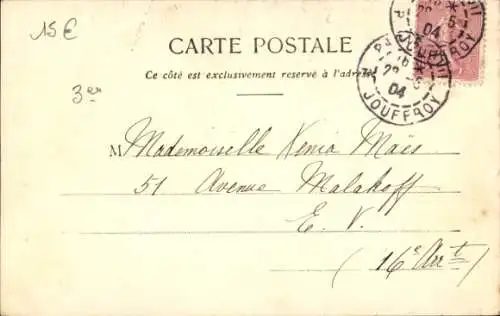 15€
CARTE POSTALE
Ce côté est exclusivement reservé à l'adresse
3er
M Mademoiselle Xenia Maës
51 Avenue Malakoff
E. V.
(16e Arrt)
04
JOUFFROY
04
JOUFFROY